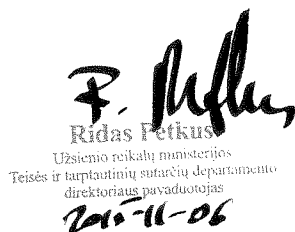 Ridas Petkus
Užsienio reikalų ministerijos
Teisės ir tarptautinių sutarčių departamento
direktoriaus pavaduotojas
2015-11-06